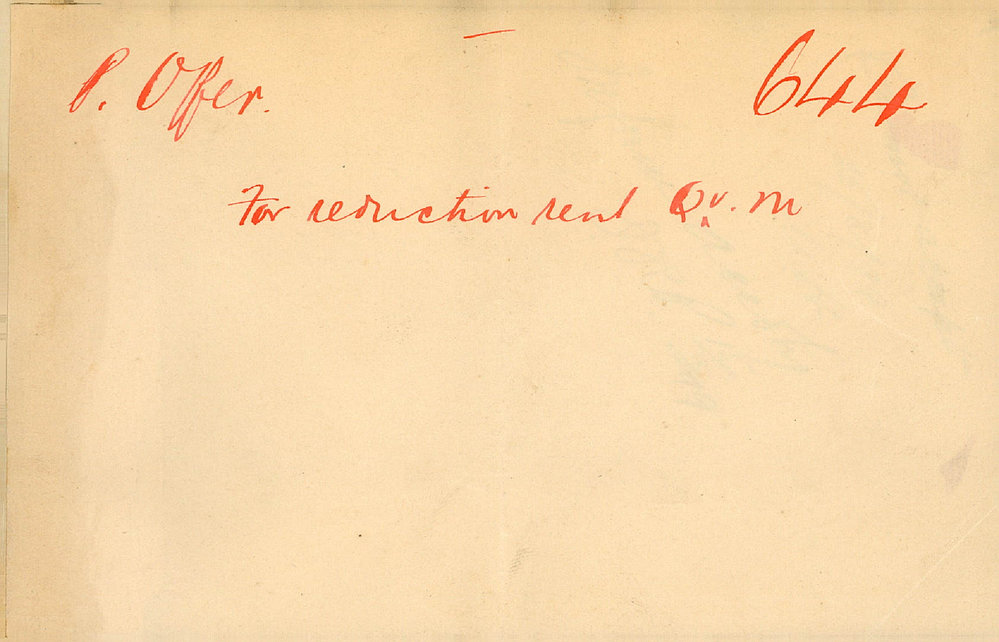 P. Offer. 644
For reduction rent Qu. M